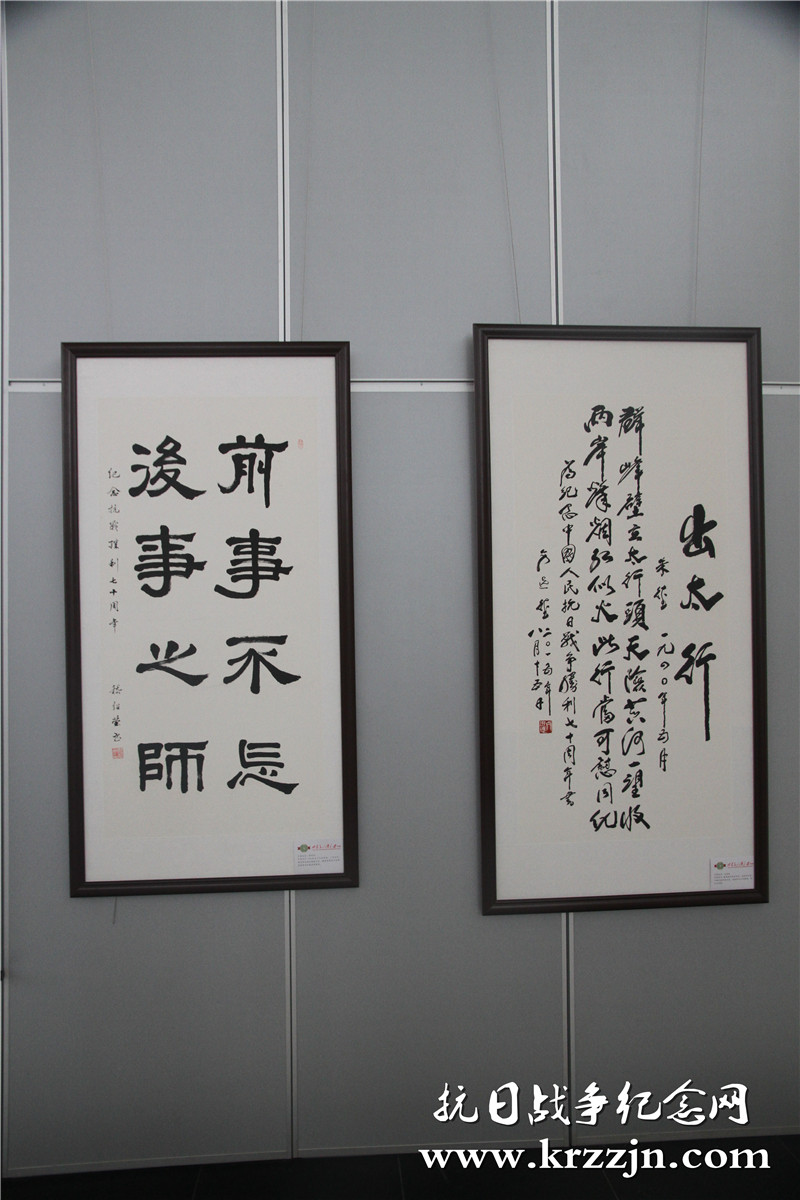 前事不忘
後事之師
纪念抗战胜利七十周年
出太行
朱德 一九四〇年五月
群峰壁立太行頭天險黄河一望收
两岸烽烟红似火此行當可慰同仇
為纪念中國人民抗日戰争勝利七十周年书
二〇一五年
八月十五日
抗日战争纪念网
www.krzzjn.com